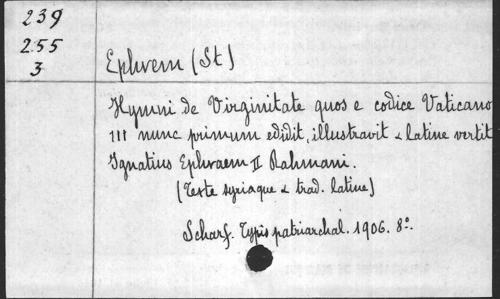 239
255
3
Ephrem (St)
Hymni de Virginitate quos e codice Vaticano
111 nunc primum edidit, illustravit & latine vertit
Ignatius Ephraem II Rahmani.
(Texte syriaque & trad. latine)
Scharf. Typis patriarchal. 1906. 8º.